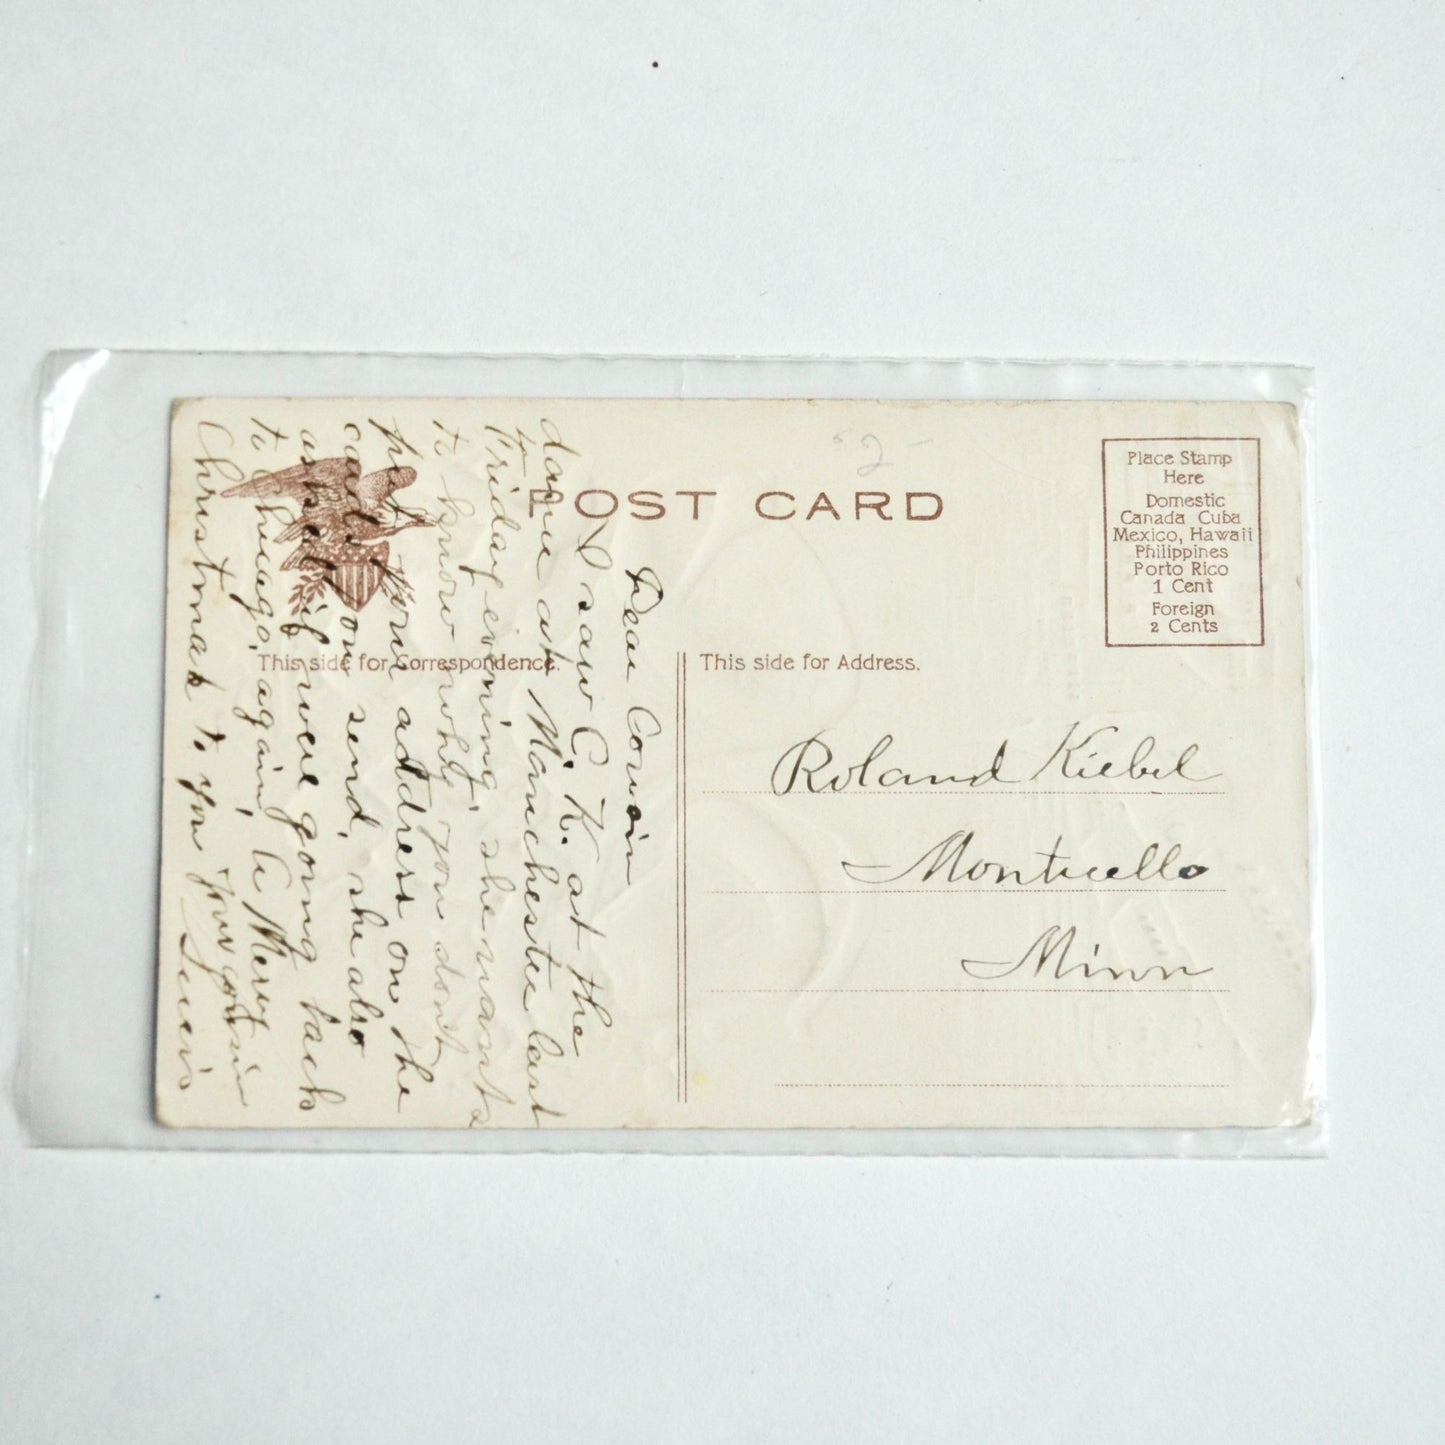 POST CARD
Place Stamp
Here
Domestic
Canada Cuba
Mexico, Hawaii
Philippines
Porto Rico
1 Cent
Foreign
2 Cents
This side for Correspondence.
This side for Address.
Dear Cousin
I saw C. K. at the
dance at Manchester last
Friday evening, she wants
to know why you dont
put your address on the
cards you send, she also
asked if were going back
to Chicago, again, A Merry
Christmas to you your cousin
Roland Kiebel
Monticello
Minn
2